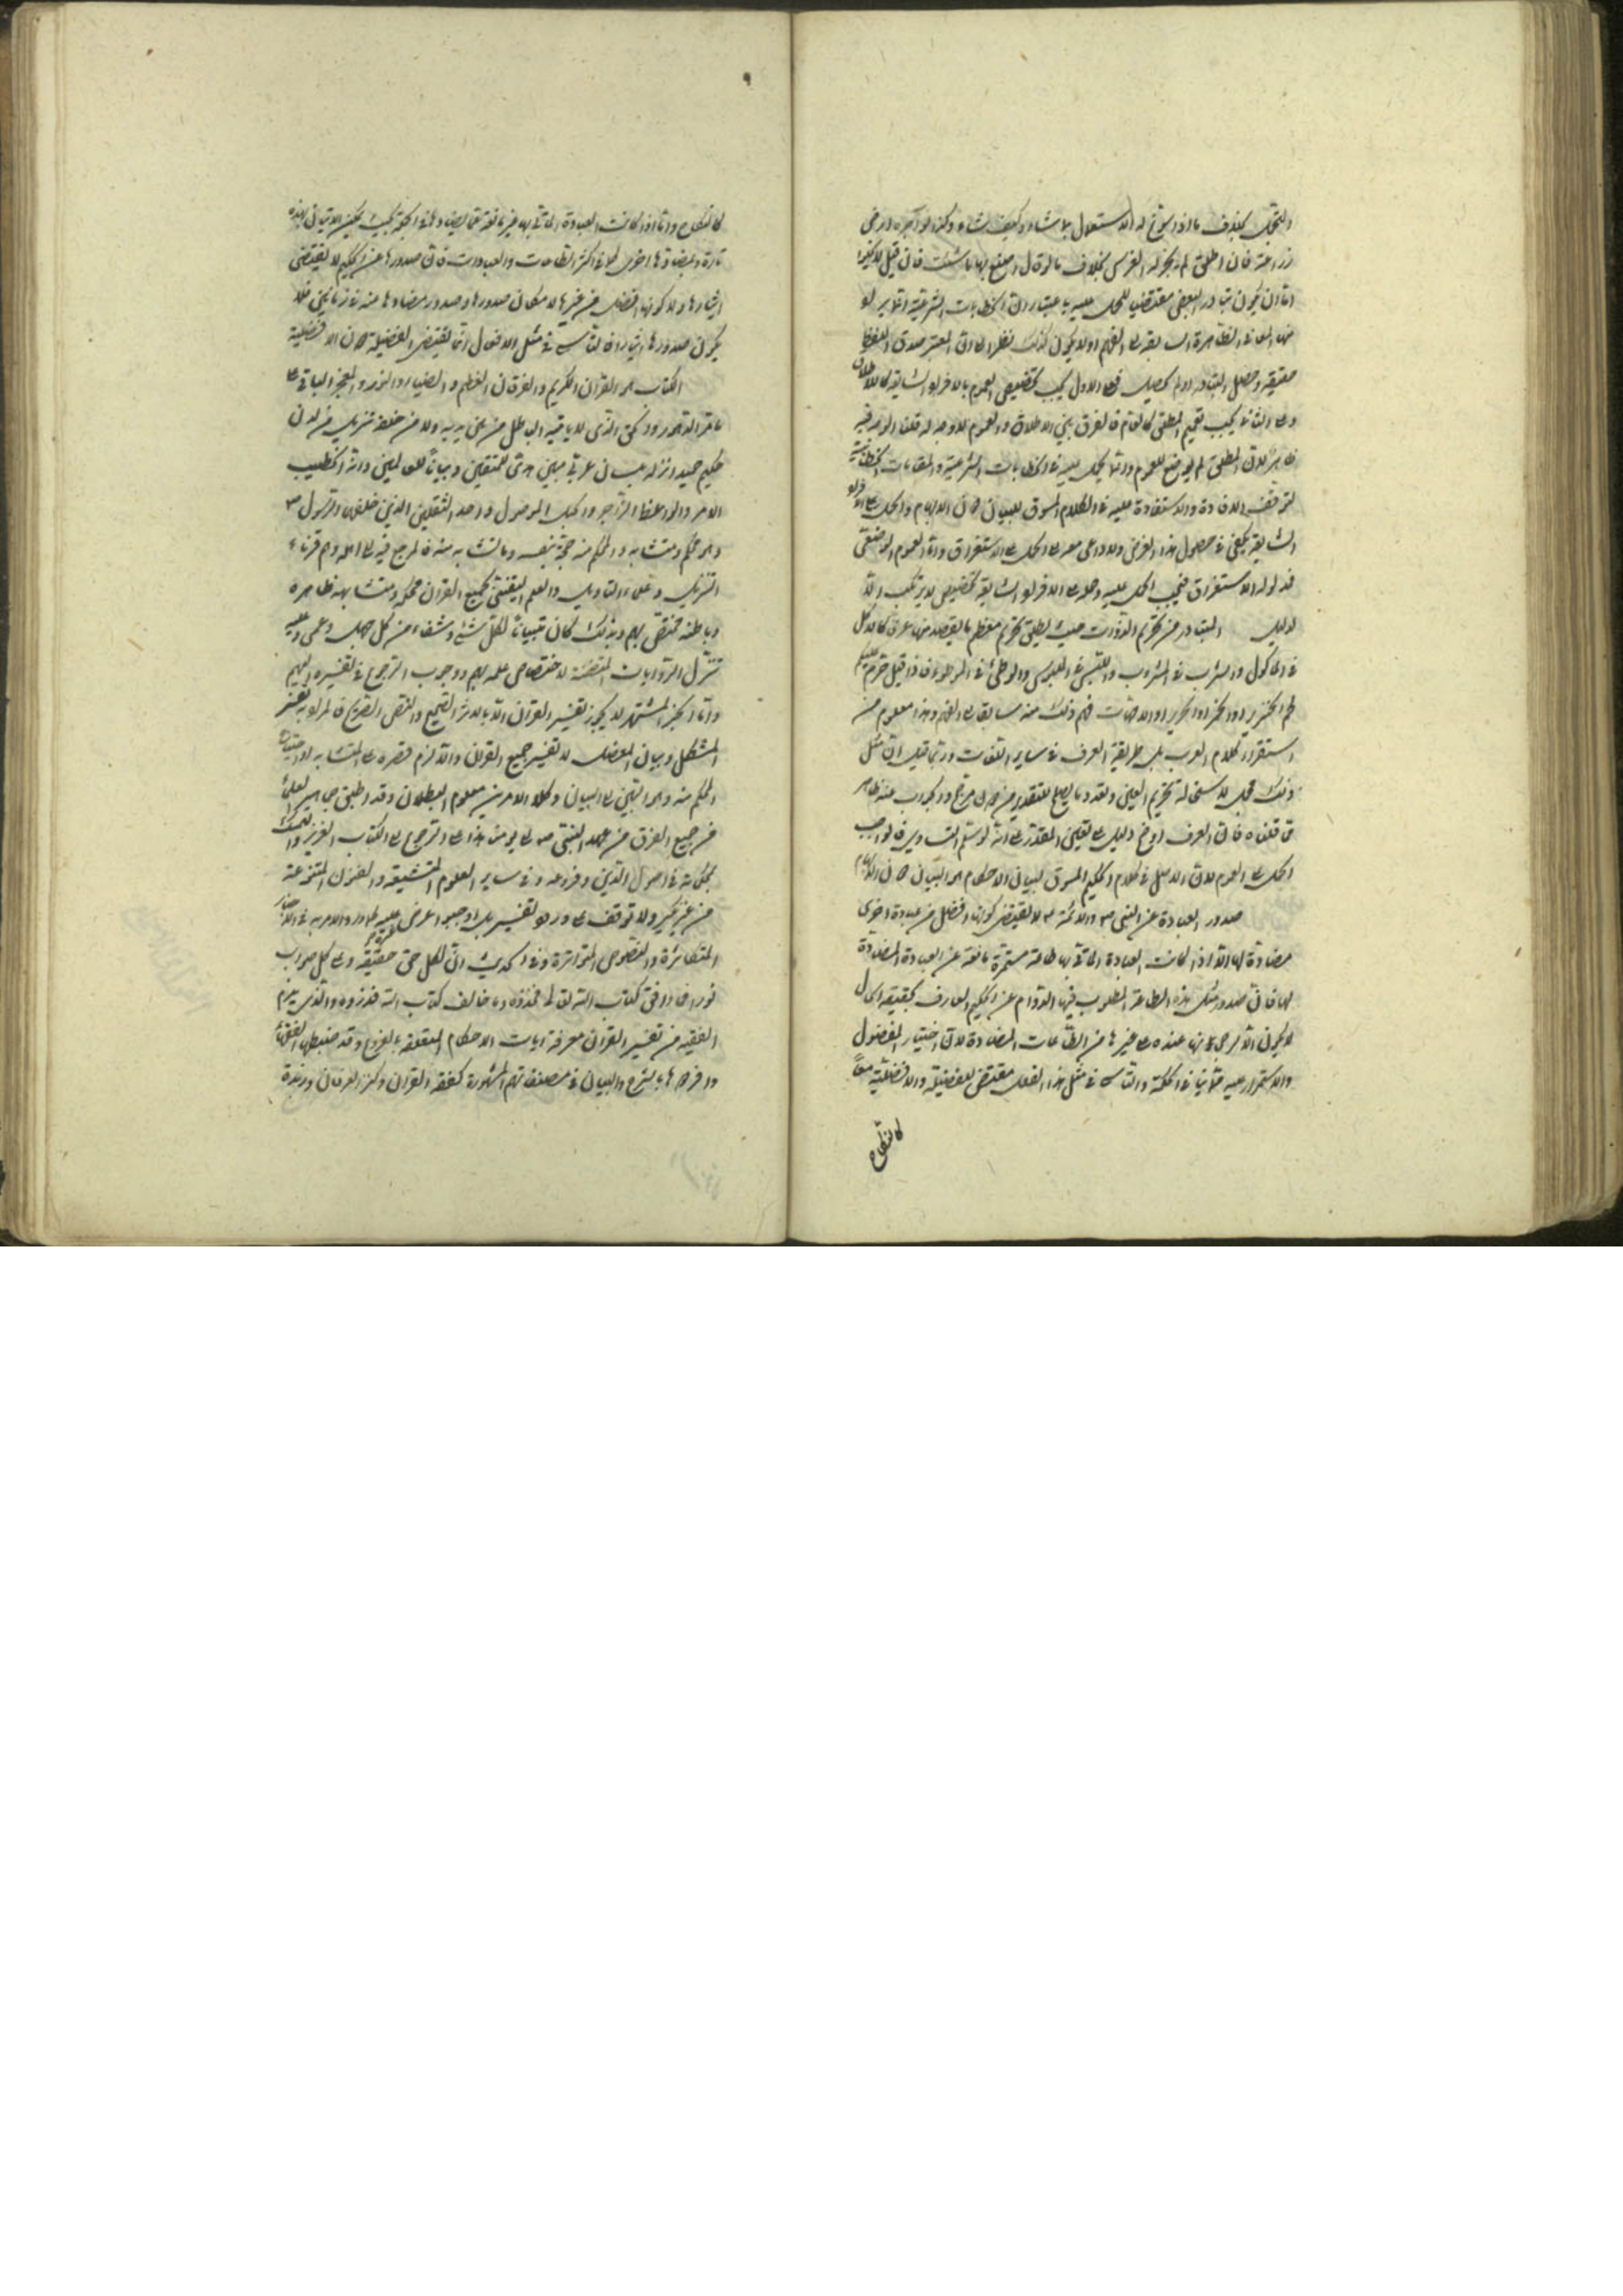 والتجمل بخلاف ما اذا سوغ له الاستعمال بما شاء وكيف شاء وكذا لو آجره ارض
زراعة فان اطلق لم يجز له الغرس بخلاف ما لو قال اصنع بها ما شئت فان قيل
اما ان يكون تبادر البعض مقتضيا للحمل عليه باعتبار ان الخطابات الشرعية
من المعانى الظاهرة السابقة الى الفهم اولا يكون كذلك نظرا الى ان المعتبر صدق اللفظ
حقيقة وحصل التبادر او لم يحصل فعلى الاول يجب تخصيص العموم بالافراد الشايعة كالاطلاق
وعلى الثانى يجب تعميم المطلق كالعام فالفرق بين الاطلاق والعموم لا وجه له قلنا الوجه فيه
ظاهر لان المطلق لم يوضع للعموم وانما يحمل عليه فى الخطابات الشرعية والمقامات الخطابية
لتوقف الافادة والاستفادة عليه فى الكلام المسوق للبيان دون الابهام والحمل على الافراد
الشايعة يكفى فى حصول هذا الغرض ولا داعى معه الى الحمل على الاستغراق واما العموم الوضعى
فمدلوله الاستغراق فيجب الحمل عليه وحمله على الافراد الشايعة تخصيص لا يرتكب الا
لدليل المتبادر من تحريم الذوات حيث يطلق تحريم معظم ما يقصد منها عرفا كالاكل
فى الماكول والشرب فى المشروب واللبس فى الملبوس والوطئ فى الموطوء فاذا قيل حرم عليكم
لحم الخنزير او الخمر او الحرير او الامهات فهم ذلك منه سابقا الى الفهم وهذا معلوم من
استقراء كلام العرب بل طريقة العرف فى ساير اللغات وربما قيل ان مثل
ذلك مجمل لاستحالة تحريم العين وتعدد ما يصلح للتقدير من دون مرجح والجواب عنه ظاهر
مما قلناه فان العرف اوضح دليل على تعيين المقدر على انه لو سلم التساوى فالواجب
الحمل على العموم لان الاصل فى كلام الحكيم المسوق لبيان الاحكام هو البيان دون الابهام
صدور العبادة عن النبى ص والائمة ع لا يقتضى كونها افضل من عبادة اخرى
مضادة لها الا اذا كانت العبادة الماتى بها طاعة مستمرة مانعة عن العبادة المضادة
لها فان صدور مثل هذه الطاعة المطلوب فيها الدوام عن الحكيم العارف بحقيقة الحال
لا يكون الا لرجحانها عنده على غيرها من الطاعات المضادة لان اختيار المفضول
والاستمرار عليه مما ينافى الحكمة والتاسى فى مثل هذا الفعل مقتضى للفضيلة والافضلية معا
كالنكاح
كالنكاح واما اذا كانت العبادة الماتى بها غير مانعة عما يضادها فى الجملة بحيث يمكن الاتيان بهذه
تارة وبمضادها اخرى كما فى اكثر الطاعات والعبادات فان صدورها عن الحكيم لا يقتضى
ايثارها ولا كونها افضل من غيرها لامكان صدورها وصدور مضادها منه فى زمانين فلا
يكون صدورها ايثارا فالتاسى فى مثل الافعال انما يقتضى الفضيلة دون الافضلية
الكتاب هو القرآن الكريم والفرقان العظيم والضياء والنور والمعجز الباقى على
مر الدهور والحق الذى لا ياتيه الباطل من بين يديه ولا من خلفه تنزيل من لدن
حكيم حميد انزله بلسان عربى مبين هدى للمتقين وبيانا للعالمين وانه الخطيب
الامر والواعظ الزاجر والحبل الموصول واحد الثقلين الذين خلفهما الرسول ص
وهو محكم ومتشابه والمحكم منه حجة بنفسه وما تشابه منه فالمرجع فيه الى اهله وهم قرناء
التنزيل وعلماء التاويل والعلم اليقينى بجميع القرآن محكمه ومتشابهه ظاهره
وباطنه مختص بهم وبذلك كان تبيانا لكل شئ وشفاء من كل جهل وعمى وعليه
تنزل الروايات المتضمنة لاختصاص علمه بهم ووجوب الرجوع فى تفسيره اليهم
واما الخبر المشتهر لا يجوز تفسير القرآن الا بالاثر الصحيح والنص الصريح فالمراد به تفسير
المشكل وبيان المعضل لا تفسير جميع القرآن والا لزم قصره على المتشابه او احتياج
المحكم منه وهو البين الى البيان وكلا الامرين معلوم البطلان وقد اطبق جماهير العلماء
من جميع الفرق من عهد النبى ص الى يومنا هذا على الرجوع الى الكتاب العزيز والتمسك
بمحكماته فى اصول الدين وفروعه وفى ساير العلوم المتشعبة والفنون المتنوعة
من غير نكير ولا توقف على ورود تفسير بل اوجبوا عرض الحديث عليه لما ورد الامر به فى الاخبار
المتكاثرة والنصوص المتواترة وفى الحديث ان لكل حق حقيقة وعلى كل صواب
نورا فما وافق كتاب الله تعالى فخذوه وما خالف كتاب الله فذروه والذى يلزم
الفقيه من تفسير القرآن معرفة ايات الاحكام المتعلقة بالفروع وقد ضبطها الفقهاء
وافردوها بالشرح والبيان فى مصنفاتهم المشهورة كفقه القرآن وكنز العرفان وزبدة